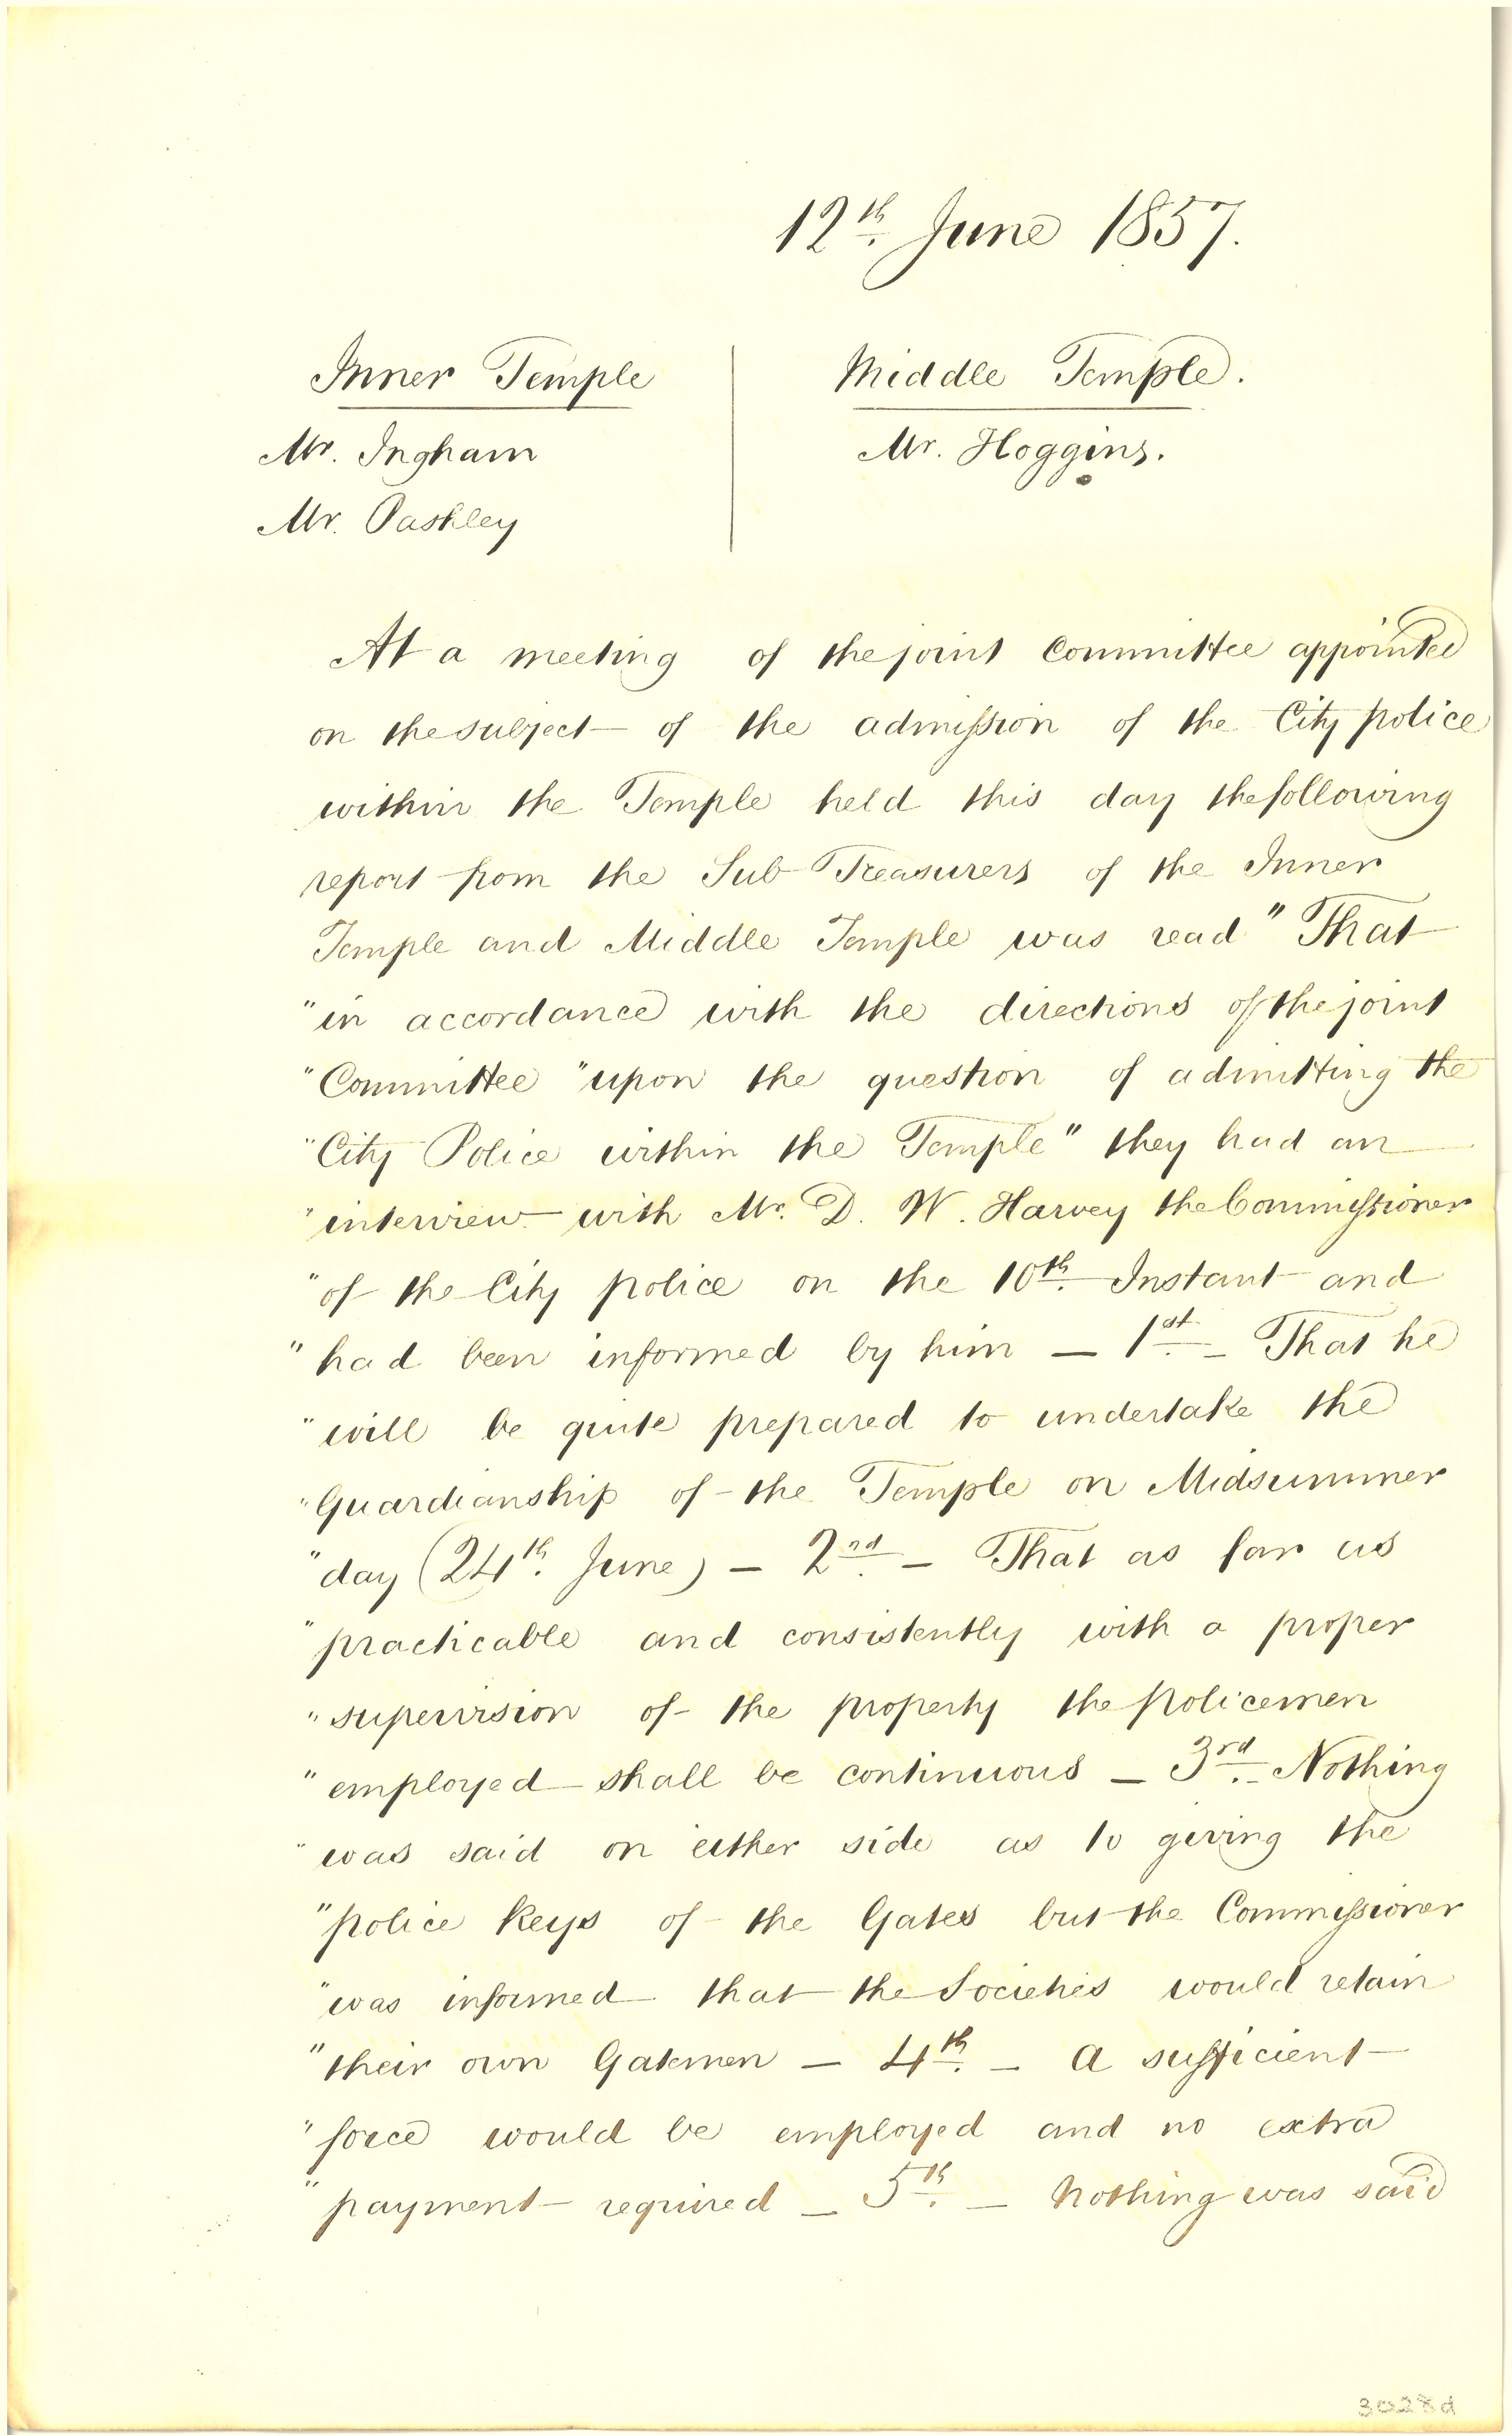 12th. June 1857.
Inner Temple
Middle Temple.
Mr. Ingham
Mr. Hoggins.
Mr. Pashley
At a meeting of the joint Committee appointed
on the subject of the admission of the City police
within the Temple held this day the following
report from the Sub Treasurers of the Inner
Temple and Middle Temple was read "That
"in accordance with the directions of the joint
"Committee "upon the question of admitting the
"City Police within the Temple" they had an
"interview with Mr. D. W. Harvey the Commissioner
"of the City police on the 10th. Instant and
"had been informed by him — 1st. — That he
"will be quite prepared to undertake the
"Guardianship of the Temple on Midsummer
"day (24th. June) — 2nd. — That as far as
"practicable and consistently with a proper
"supervision of the property the policemen
"employed shall be continuous — 3rd. — Nothing
"was said on either side as to giving the
"police keys of the Gates but the Commissioner
"was informed that the Societies would retain
"their own Gatemen — 4th. — A sufficient
"force would be employed and no extra
"payment required — 5th. — Nothing was said
3028d